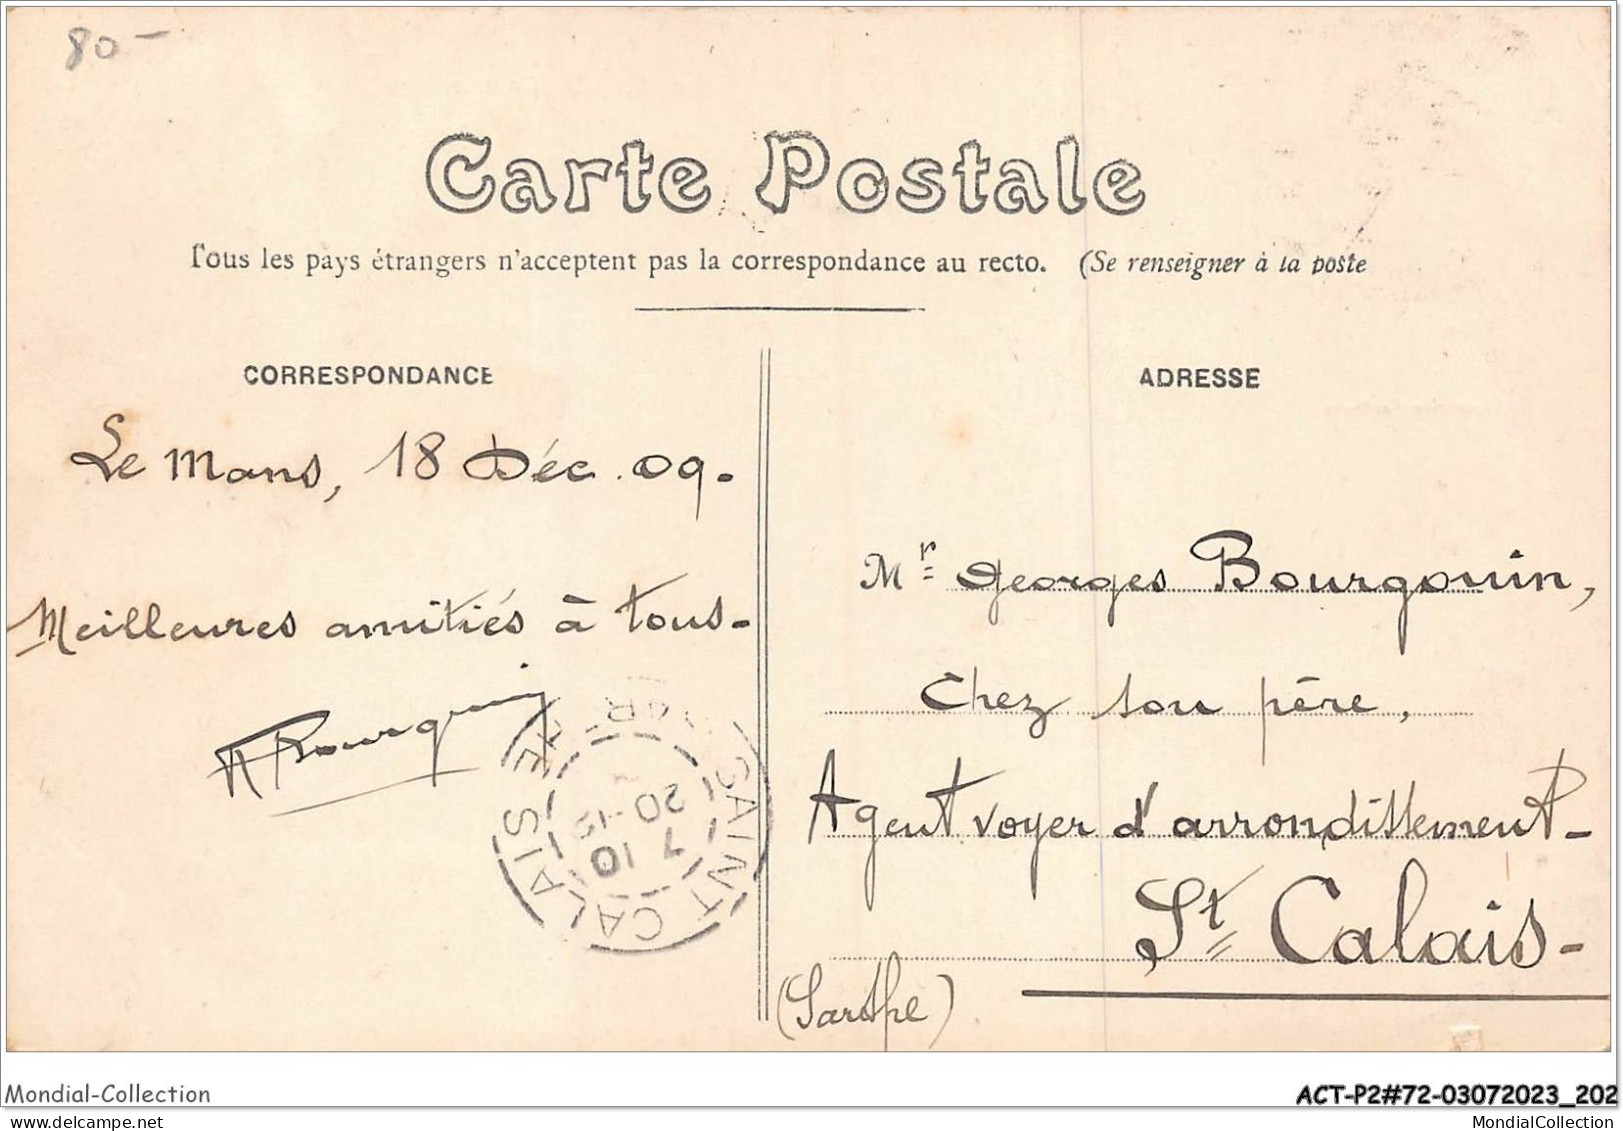 80-
Carte Postale
Tous les pays étrangers n'acceptent pas la correspondance au recto. (Se renseigner à la poste
CORRESPONDANCE
Le Mans, 18 Déc. 09.
Meilleures amitiés à tous-
ADRESSE
Mr Georges Bourgouin,
Chez son père,
Agent voyer d'arrondissement-
St Calais-
(Sarthe)
SAINT CALAIS
7 10
20-12
Mondial-Collection
ACT-P2#72-03072023_202
MondialCollection
MondialCollection